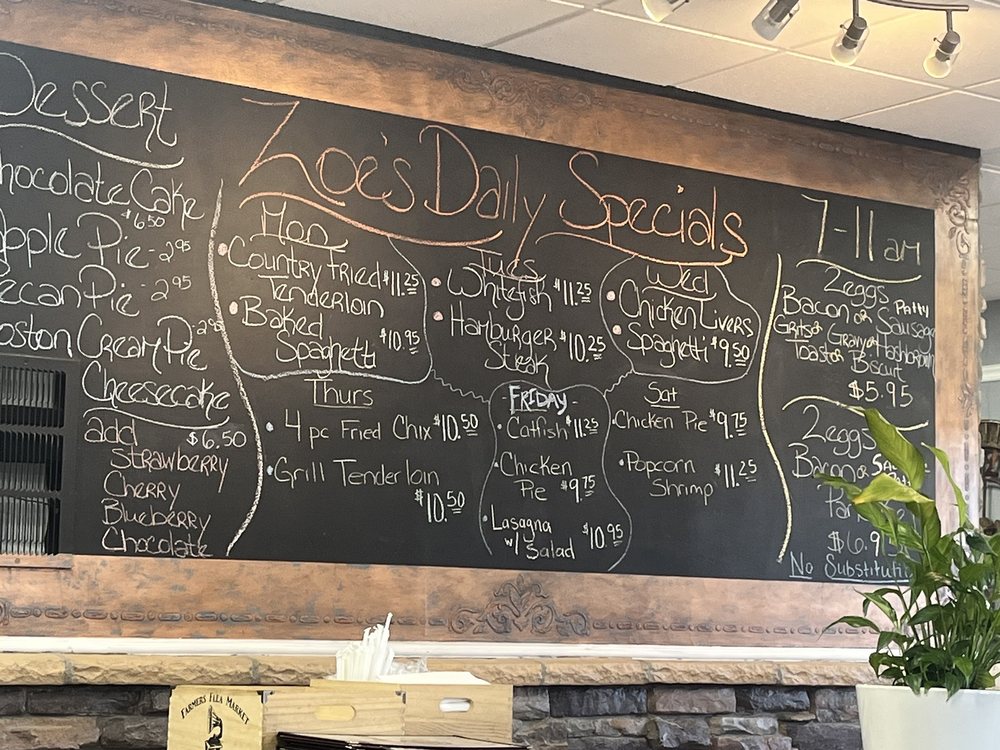 Dessert
Chocolate Cake
$6.50
Apple Pie - 2.95
Pecan Pie - 2.95
Boston Cream Pie - 2.95
Cheesecake
$6.50
add
Strawberry
Cherry
Blueberry
Chocolate
Zoe's Daily Specials
Mon
• Country Fried $11.25
Tenderloin
• Baked
Spaghetti $10.95
Tues
• Whitefish $11.25
• Hamburger $10.25
Steak
Wed
• Chicken Livers
• Spaghetti $9.50
Thurs
• 4 pc Fried Chix $10.50
• Grill Tenderloin
$10.50
- FRIDAY -
• Catfish $11.25
• Chicken
Pie $9.75
• Lasagna
w/ Salad $10.95
Sat
• Chicken Pie $9.75
• Popcorn
Shrimp $11.25
7-11 am
2 eggs
Bacon or Patty Sausage
Grits or Gravy or Hashbrown
Toast or Biscuit
$5.95
2 eggs
Bacon or
$6.95
No
FARMERS FLEA MARKET